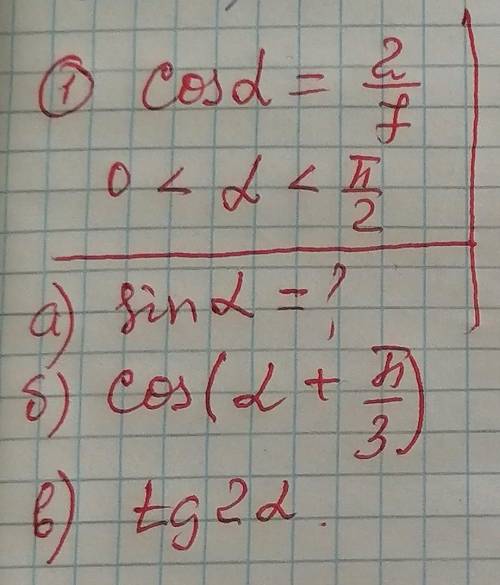 ① cosα = 2/7
0 < α < π/2
а) sinα = ?
б) cos(α + π/3)
в) tg2α.